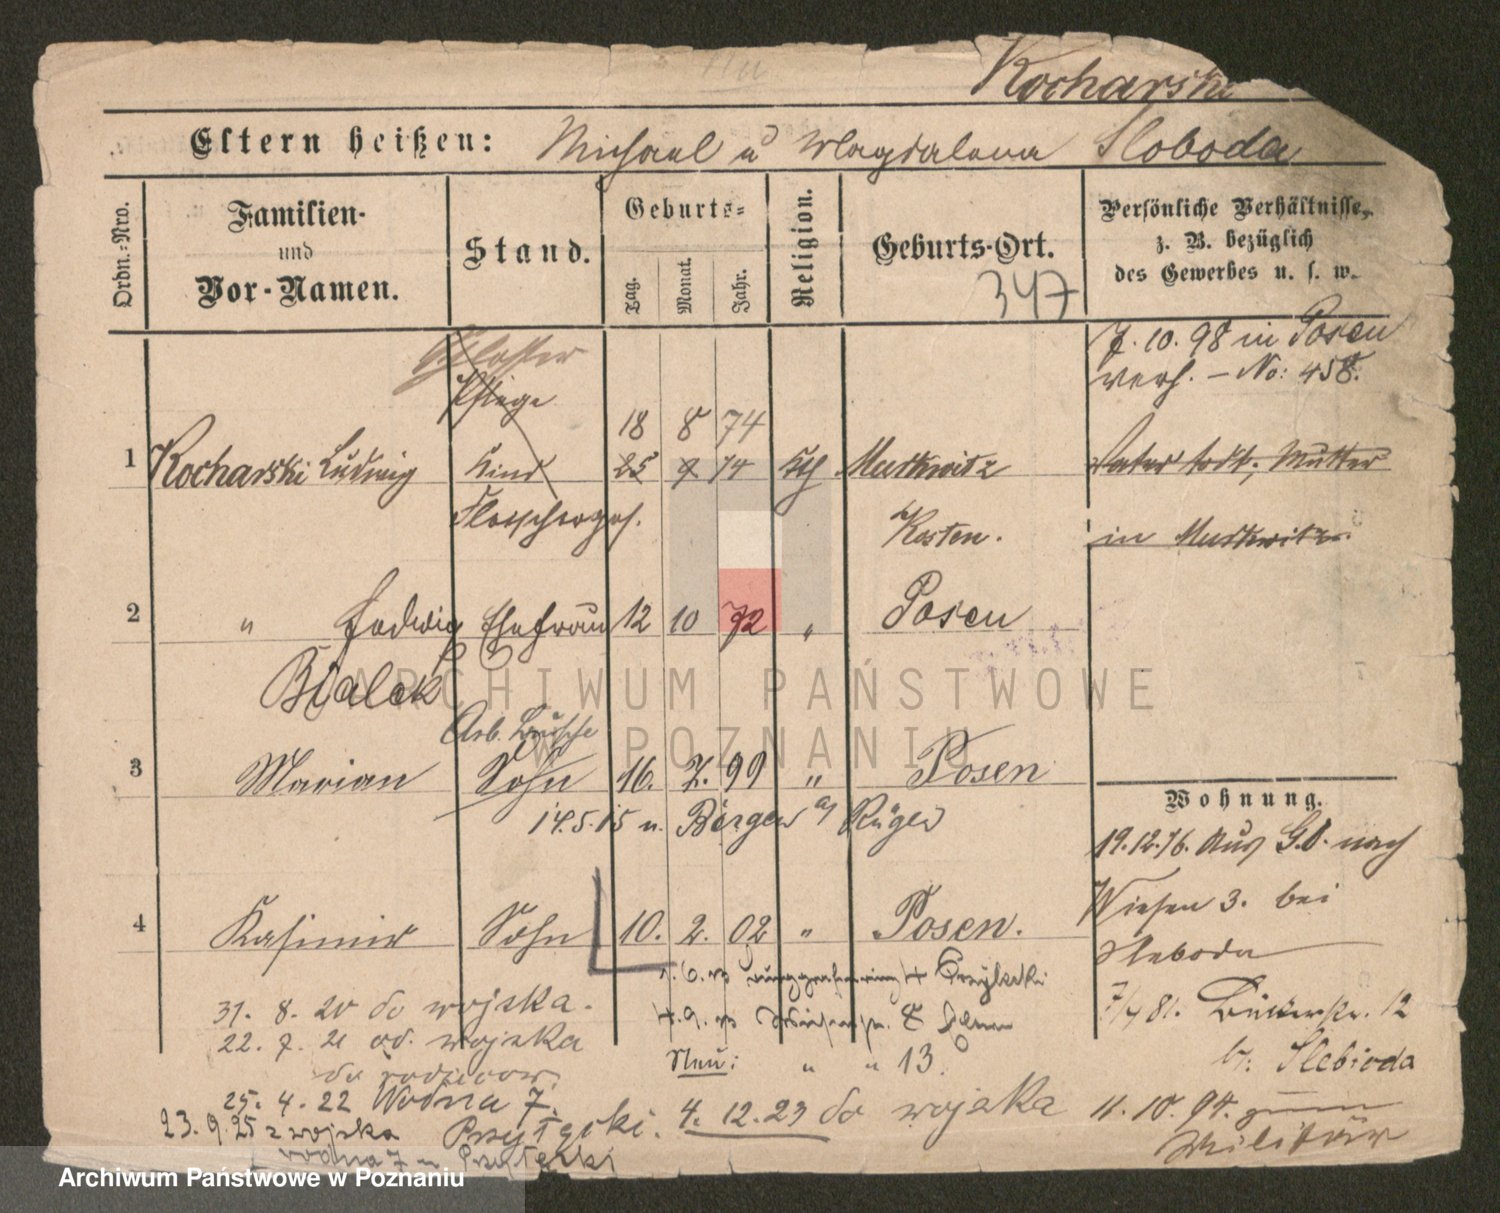 Kocharski
Eltern heißen: Michael u Magdalena Sloboda
Ordn.-Nro.
Familien-
und
Vor-Namen.
Stand.
Geburts-
Tag.
Monat.
Jahr.
Religion.
Geburts-Ort.
347
Persönliche Verhältnisse,
z. B. bezüglich
des Gewerbes u. s. w.
7. 10. 98 in Posen
verh. – No: 458.
Pflege
18 8 74
1 Kocharski Ludwig Kind 25 9 74 kth Murkwitz Vater todt, Mutter
Fleischerges. Kosten. in Murkwitz.
2 " Hedwig Ehefrau 12 10 72 " Posen
Bialek
Arb. Bursche
3 Marian Sohn 16. 7. 99 " Posen
14.5.15 n. Bergen a/ Rügen
Wohnung.
19.12.76. Aus G.D. nach
Wiesen 3. bei
Sleboda
4 Kasimir Sohn 10. 2. 02 " Posen.
31. 8. 20 do wojska.
22. 7. 21 od. wojska
do rodziców.
Neu: " " 13.
12
b. Slebioda
25. 4. 22 Wodna 7.
Przytęcki. 4. 12. 23 do wojska
11. 10. 94. zum
Militär
23. 9. 25 z wojska
wodna 7 u Przytęcki
ARCHIWUM PAŃSTWOWE
W POZNANIU
Archiwum Państwowe w Poznaniu